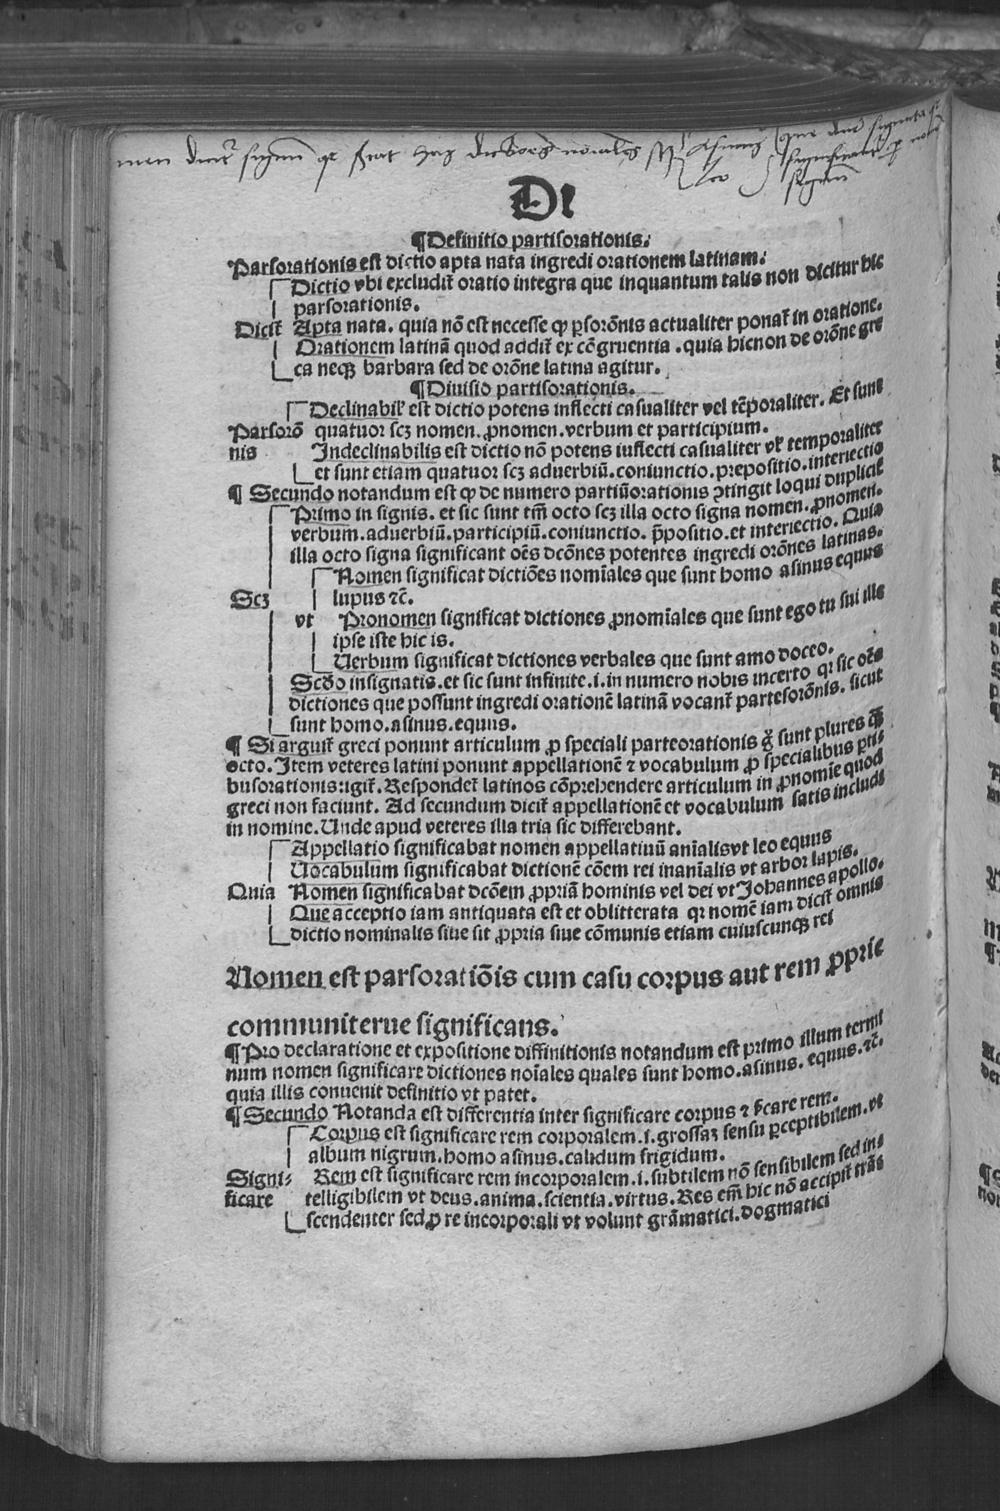 De
¶Definitio partisorationis.
Parsorationis est dictio apta nata ingredi orationem latinam.
Dictio vbi excludit᷑ oratio integra que inquantum talis non dicitur hic
parsorationis.
Dicit᷑ Apta nata. quia nō est necesse ꝙ ꝑsorōnis actualiter ponat᷑ in oratione.
Orationem latinā quod addit᷑ ex cōgruentia .quia hic non de orōne gre
ca neqꝫ barbara sed de orōne latina agitur.
¶Diuisio partisorationis.
Declinabil' est dictio potens inflecti casualiter vel tēporaliter. Et sunt
Parsorō quatuor scꝫ nomen. ꝓnomen. verbum et participium.
nis Indeclinabilis est dictio nō potens inflecti casualiter vl' temporaliter
et sunt etiam quatuor scꝫ aduerbiū.coniunctio.prepositio.interiectio
¶ Secundo notandum est ꝙ de numero partiūorationis ꝯtingit loqui duplicit᷑
Primo in signis. et sic sunt tm̄ octo scꝫ illa octo signa nomen. ꝓnomen.
verbum.aduerbiū.participiū.coniunctio. p̄positio.et interiectio. Quia
illa octo signa significant oēs dcōnes potentes ingredi orōnes latinas.
Nomen significat dictiōes nomīales que sunt homo asinus equus
Scꝫ lupus ⁊c̄.
vt Pronomen significat dictiones ꝓnomīales que sunt ego tu sui ille
ipse iste hic is.
Uerbum significat dictiones verbales que sunt amo doceo.
Scd̄o insignatis.et sic sunt infinite.i.in numero nobis incerto qꝛ sic oēs
dictiones que possunt ingredi orationē latinā vocant᷑ partesorōnis. sicut
sunt homo.asinus.equus.
¶ Si arguit᷑ greci ponunt articulum ꝓ speciali parteorationis g̊ sunt plures q̄ꝫ
octo.Item veteres latini ponunt appellationē ⁊ vocabulum ꝓ specialibus ꝑti-
busorationis:igit᷑. Respondet᷑ latinos cōprehendere articulum in ꝓnomīe quod
greci non faciunt. Ad secundum dicit᷑ appellationē et vocabulum satis includi
in nomine.Unde apud veteres illa tria sic differebant.
Appellatio significabat nomen appellatiuū anīalis vt leo equus
Uocabulum significabat dictionē cōem rei inanīalis vt arbor lapis.
Quia Nomen significabat dcōem ꝓpriā hominis vel dei vt Johannes apollo.
Que acceptio iam antiquata est et oblitterata qꝛ nomē iam dicit᷑ omnis
dictio nominalis siue sit ꝓpria siue cōmunis etiam cuiuscunqꝫ rei
Nomen est parsoratiōis cum casu corpus aut rem ꝓprie
communiterue significans.
¶Pro declaratione et expositione diffinitionis notandum est primo illum termi
num nomen significare dictiones noīales quales sunt homo.asinus. equus.⁊c̄.
quia illis conuenit definitio vt patet.
¶Secundo Notanda est differentia inter significare corpus ⁊ s̄care rem.
Corpus est significare rem corporalem.i.grossaꝫ sensu ꝑceptibilem.vt
album nigrum.homo asinus.calidum frigidum.
Signi- Rem est significare rem incorporalem.i.subtilem nō sensibilem sed in-
ficare telligibilem vt deus.anima.scientia.virtus.Res em̄ hic nō accipit᷑ trās
scendenter sed ꝓ re incorporali vt volunt grāmatici.dogmatici